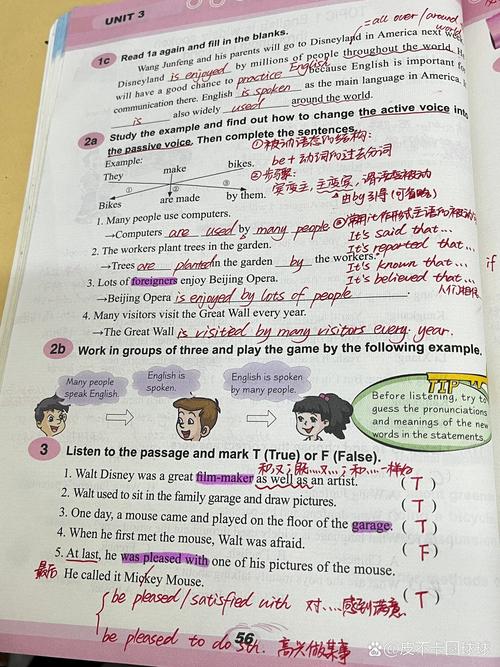 UNIT 3
1c Read 1a again and fill in the blanks.
= all over / around world
Wang Junfeng and his parents will go to Disneyland in America next week.
Disneyland is enjoyed by millions of people throughout the world. He
will have a good chance to practice English because English is important for
communication there. English is spoken as the main language in America.
is also widely used around the world.
2a Study the example and find out how to change the active voice into
the passive voice. Then complete the sentences.
①被动语态的结构:
be + 动词的过去分词
②步骤:
宾变主,主变宾,谓语变被动
由by引导(可省略)
Example:
They make bikes.
① ② ③
Bikes are made by them.
1. Many people use computers.
→Computers are used by many people.
2. The workers plant trees in the garden.
→Trees are planted in the garden by the workers.
3. Lots of foreigners enjoy Beijing Opera.
→Beijing Opera is enjoyed by lots of people.
4. Many visitors visit the Great Wall every year.
→The Great Wall is visited by many visitors every year.
It's said that...
It's reported that...
It's known that...
It's believed that...
人们相信
if
2b Work in groups of three and play the game by the following example.
Many people speak English.
English is spoken.
English is spoken by many people.
TIP
Before listening, try to
guess the pronunciations
and meanings of the new
words in the statements.
3 Listen to the passage and mark T (True) or F (False).
和;既...又...;和...一样好
1. Walt Disney was a great film-maker as well as an artist. ( T )
2. Walt used to sit in the family garage and draw pictures. ( T )
3. One day, a mouse came and played on the floor of the garage. ( T )
4. When he first met the mouse, Walt was afraid. ( F )
5. At last, he was pleased with one of his pictures of the mouse.
最后 He called it Mickey Mouse. ( T )
be pleased / satisfied with 对...感到满意
be pleased to do sth. 高兴做某事
56